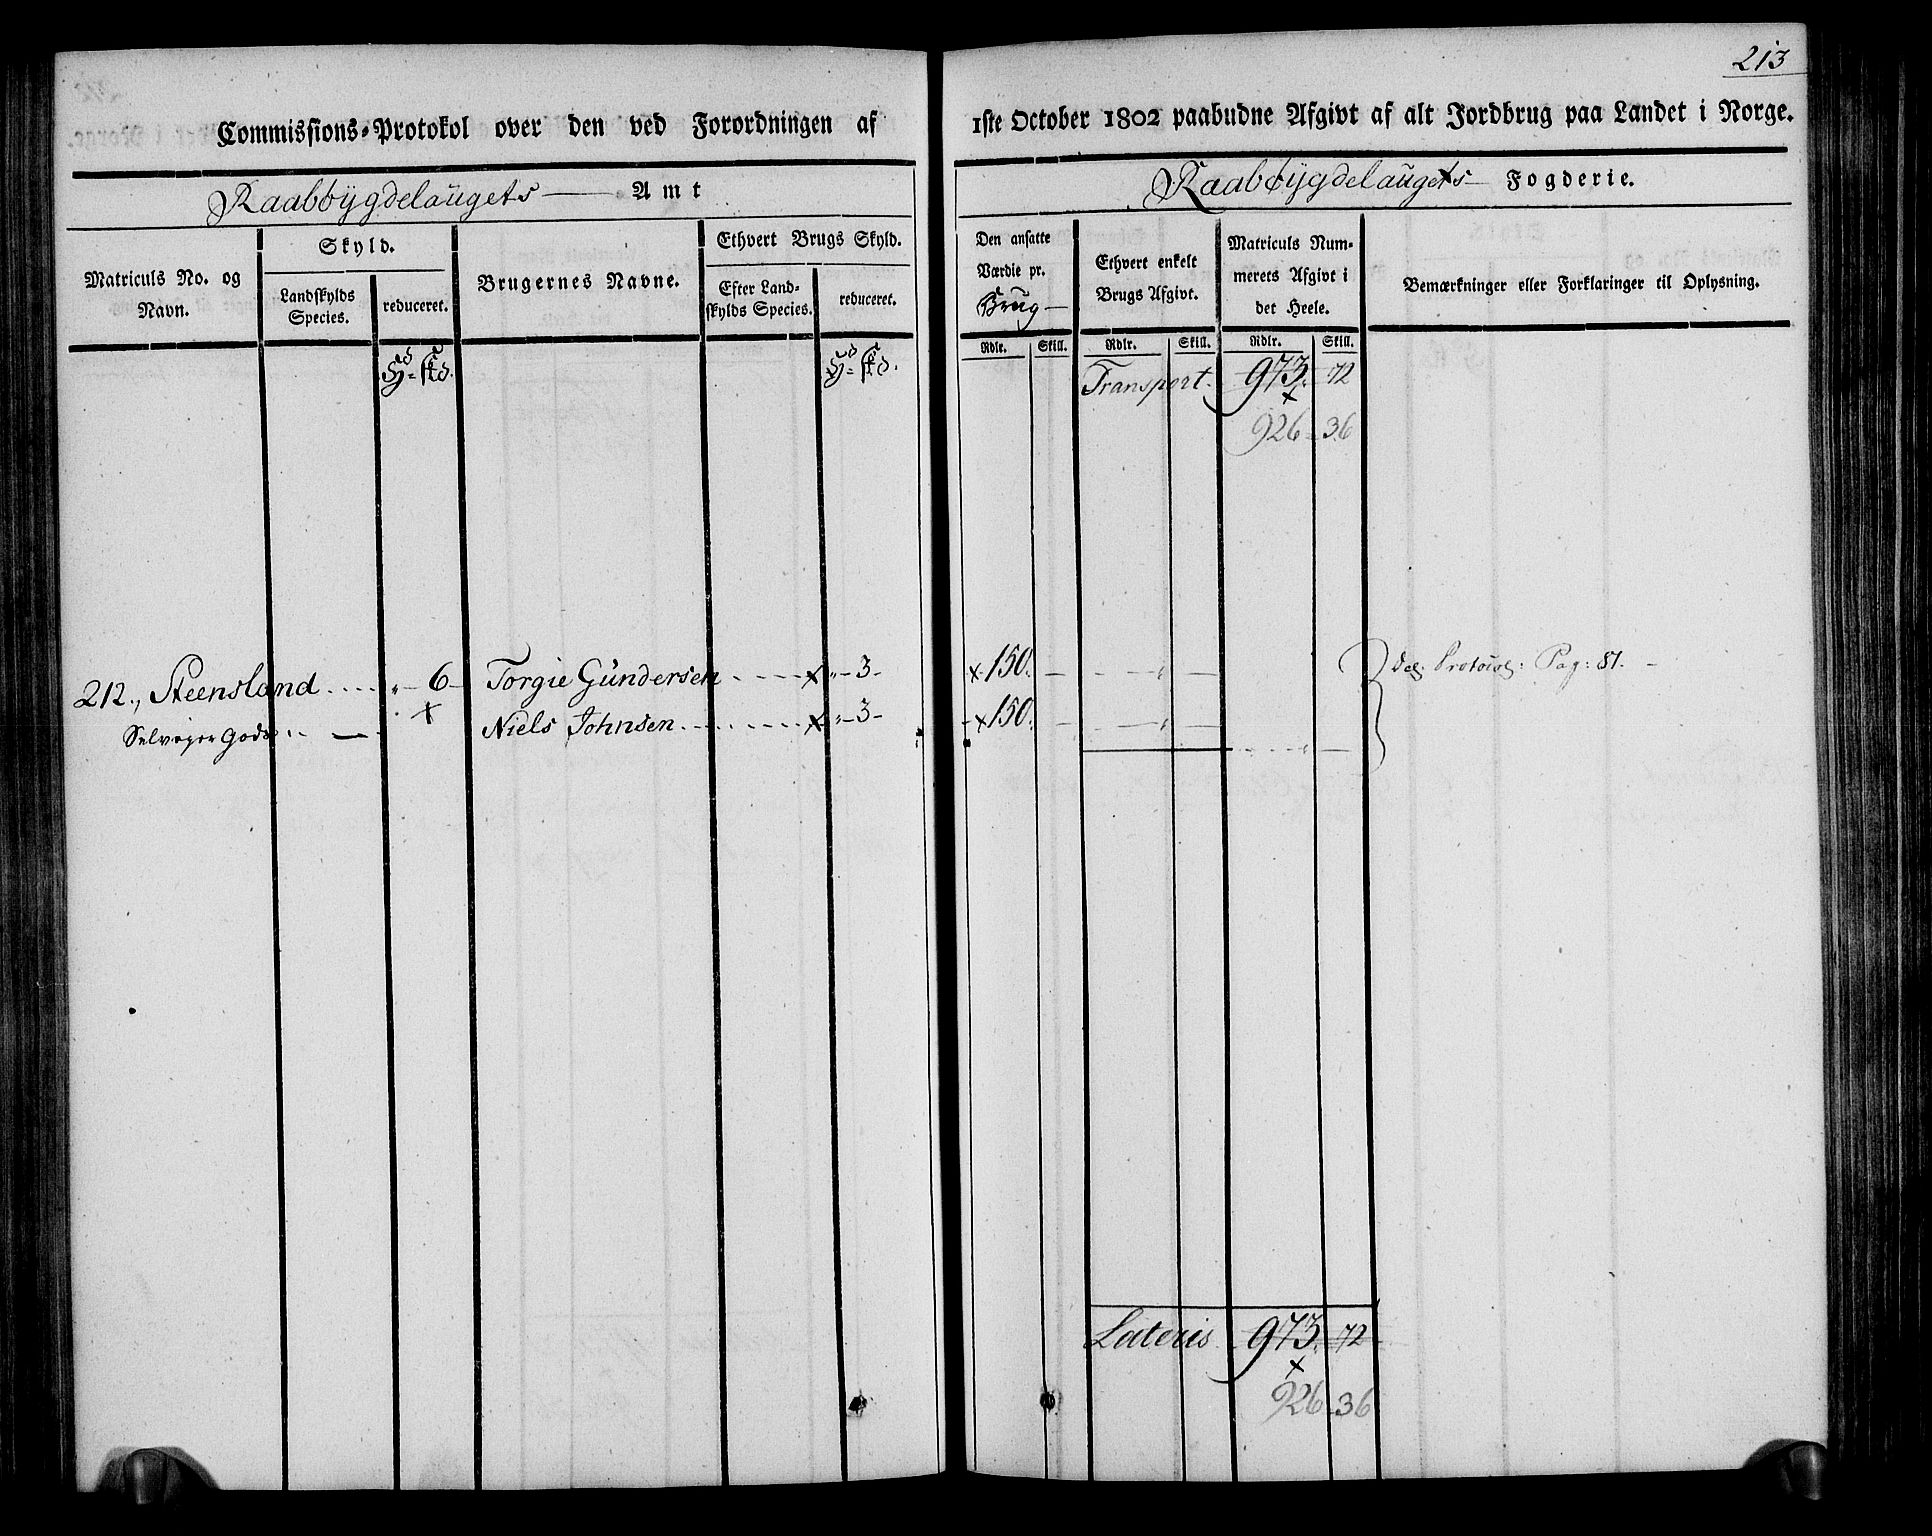 213
Commissions-Protokol over den ved Forordningen af
1ste October 1802 paabudne Afgivt af alt Jordbrug paa Landet i Norge.
Raabÿgdelaugets Amt
Raabÿgdelaugets Fogderie.
Matriculs No. og Navn.
Skyld.
Landskylds Species.
reduceret.
Brugernes Navne.
Ethvert Brugs Skyld.
Efter Landskylds Species.
reduceret.
Den ansatte Værdie pr. Brug
Ethvert enkelt Brugs Afgivt.
Matriculs Nummerets Afgivt i det Heele.
Bemærkninger eller Forklaringer til Oplysning.
Rdlr. Skill. Rdlr. Skill. Rdlr. Skill.
Transport. 973. 72
926 - 36
212., Steensland 6 Torgie Gündersen x 3 x 150. Protocol: Pag: 87.
Selveyer Gods x Niels Johnsen x 3 x 150.
Lateris 973. 72
926 - 36